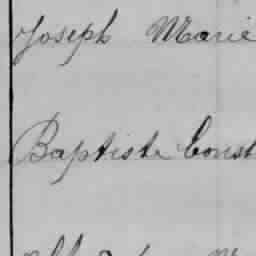 Joseph Marie
Baptiste Const